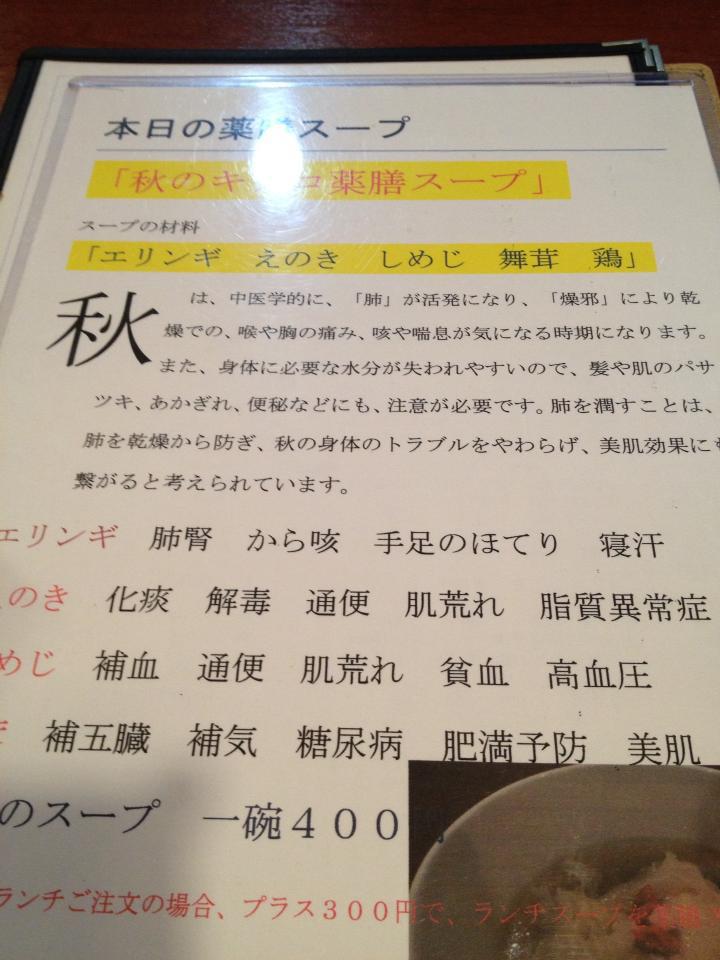 本日の薬膳スープ
「秋のキノコ薬膳スープ」
スープの材料
「エリンギ　えのき　しめじ　舞茸　鶏」
秋は、中医学的に、「肺」が活発になり、「燥邪」により乾
燥での、喉や胸の痛み、咳や喘息が気になる時期になります。
また、身体に必要な水分が失われやすいので、髪や肌のパサ
ツキ、あかぎれ、便秘などにも、注意が必要です。肺を潤すことは、
肺を乾燥から防ぎ、秋の身体のトラブルをやわらげ、美肌効果にも
繋がると考えられています。
エリンギ　肺腎　から咳　手足のほてり　寝汗
えのき　化痰　解毒　通便　肌荒れ　脂質異常症
めじ　補血　通便　肌荒れ　貧血　高血圧
茸　補五臓　補気　糖尿病　肥満予防　美肌
のスープ　一碗４００円
ランチご注文の場合、プラス３００円で、ランチスープを